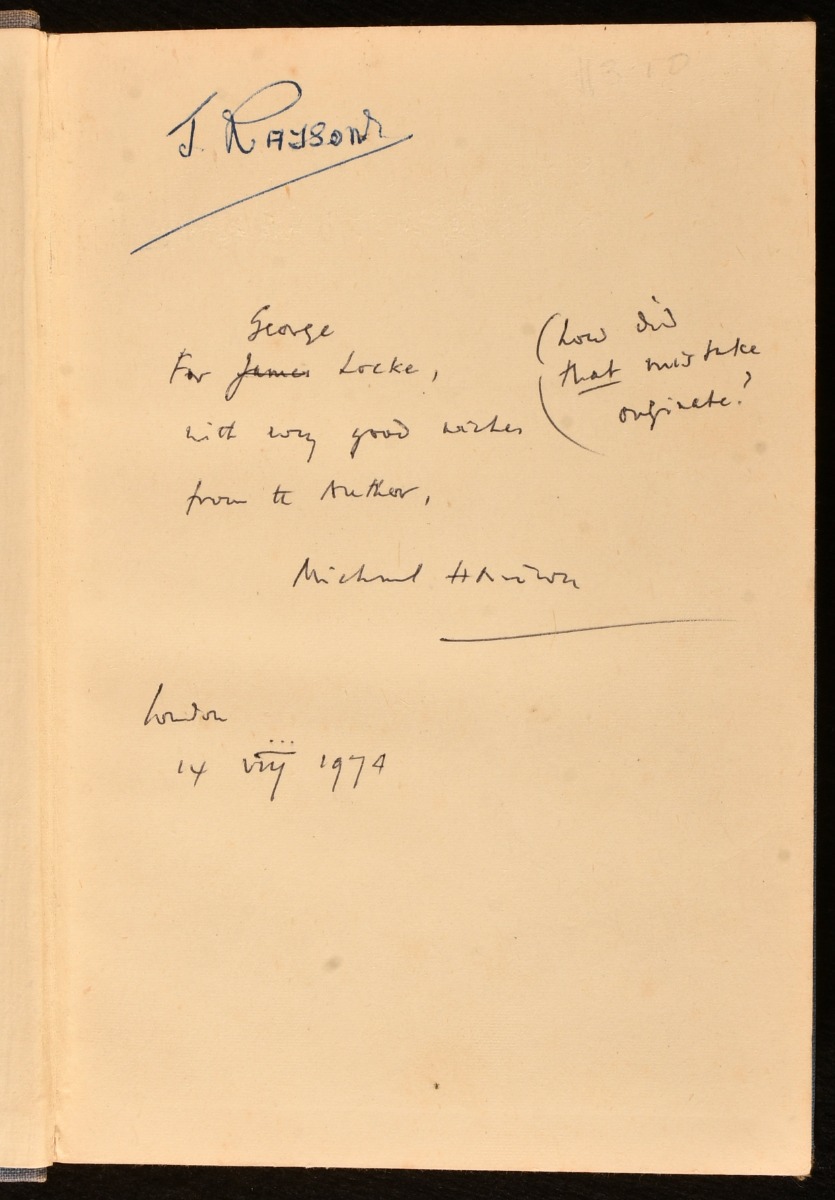 J. RAYSON
George
For James Locke,
(how did
that mistake
originate?
with very good wishes
from the Author,
Michael Harrison
London
14 viij 1974